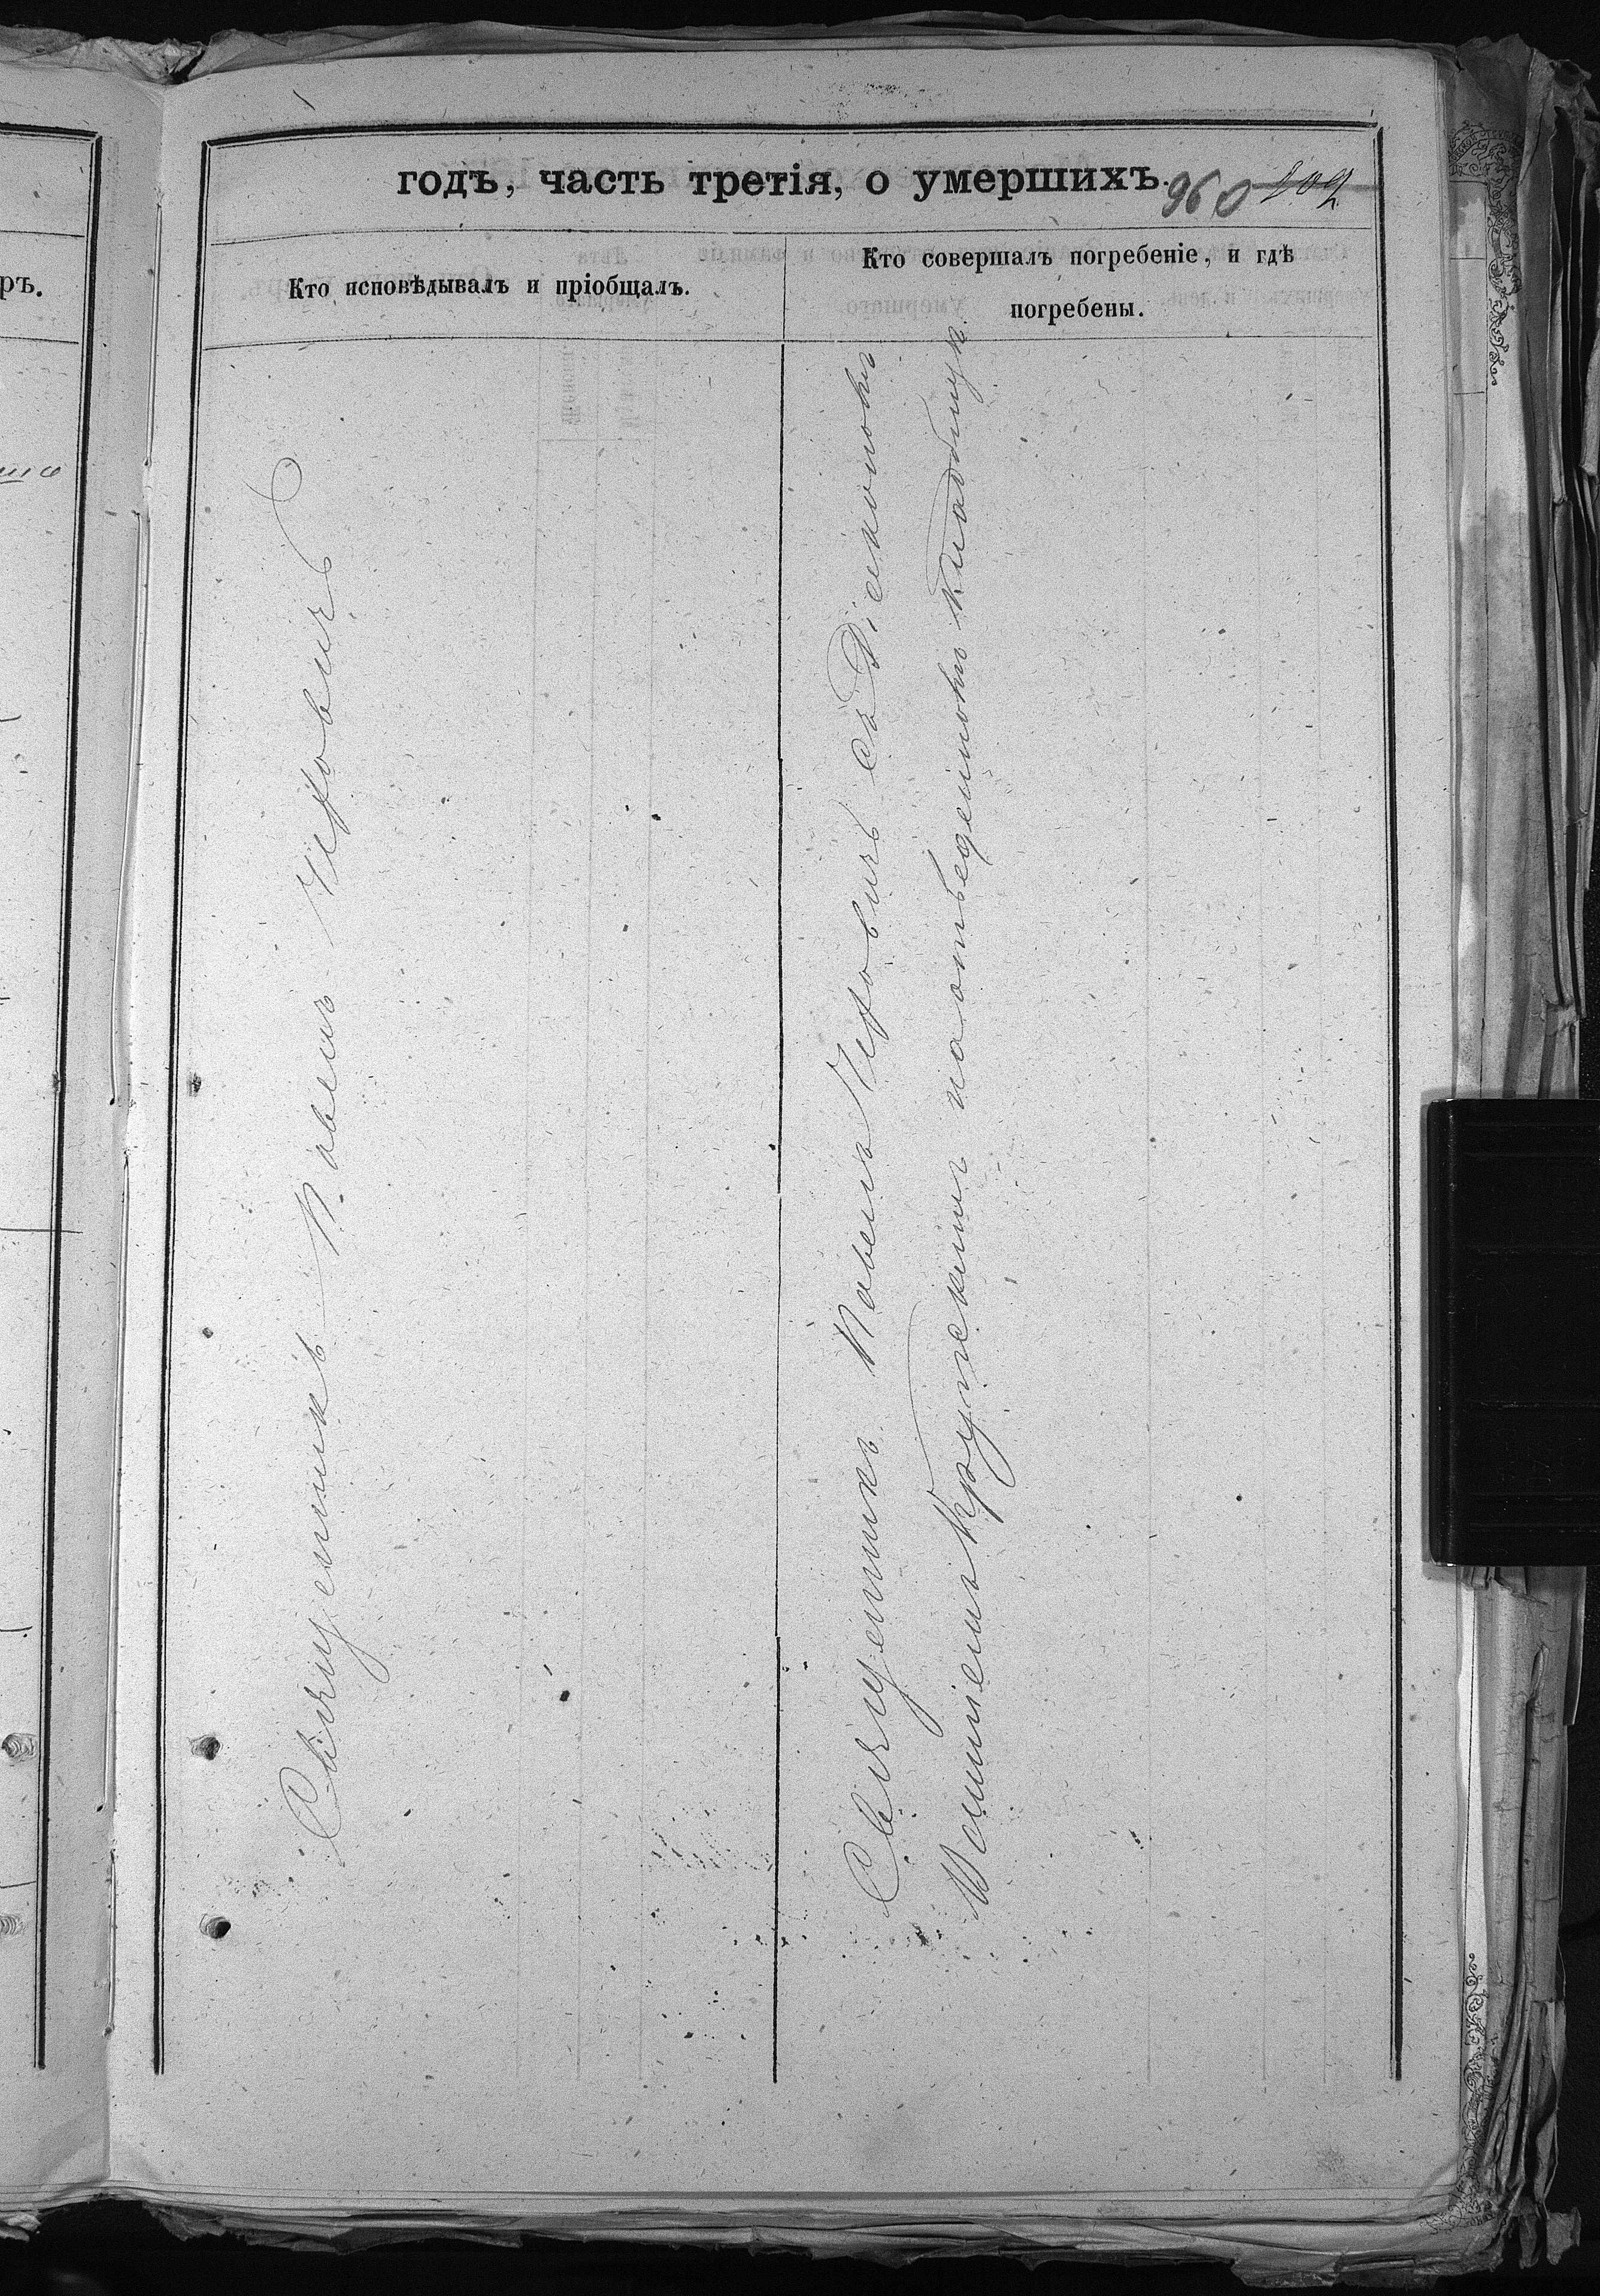 годъ, часть третія, о умершихъ.
960 809
Кто исповѣдывалъ и пріобщалъ.
Кто совершалъ погребеніе, и гдѣ
погребены.
ръ.
Священникъ Павелъ
Священникъ Павелъ съ Діакономъ
на отведенномъ кладбищѣ